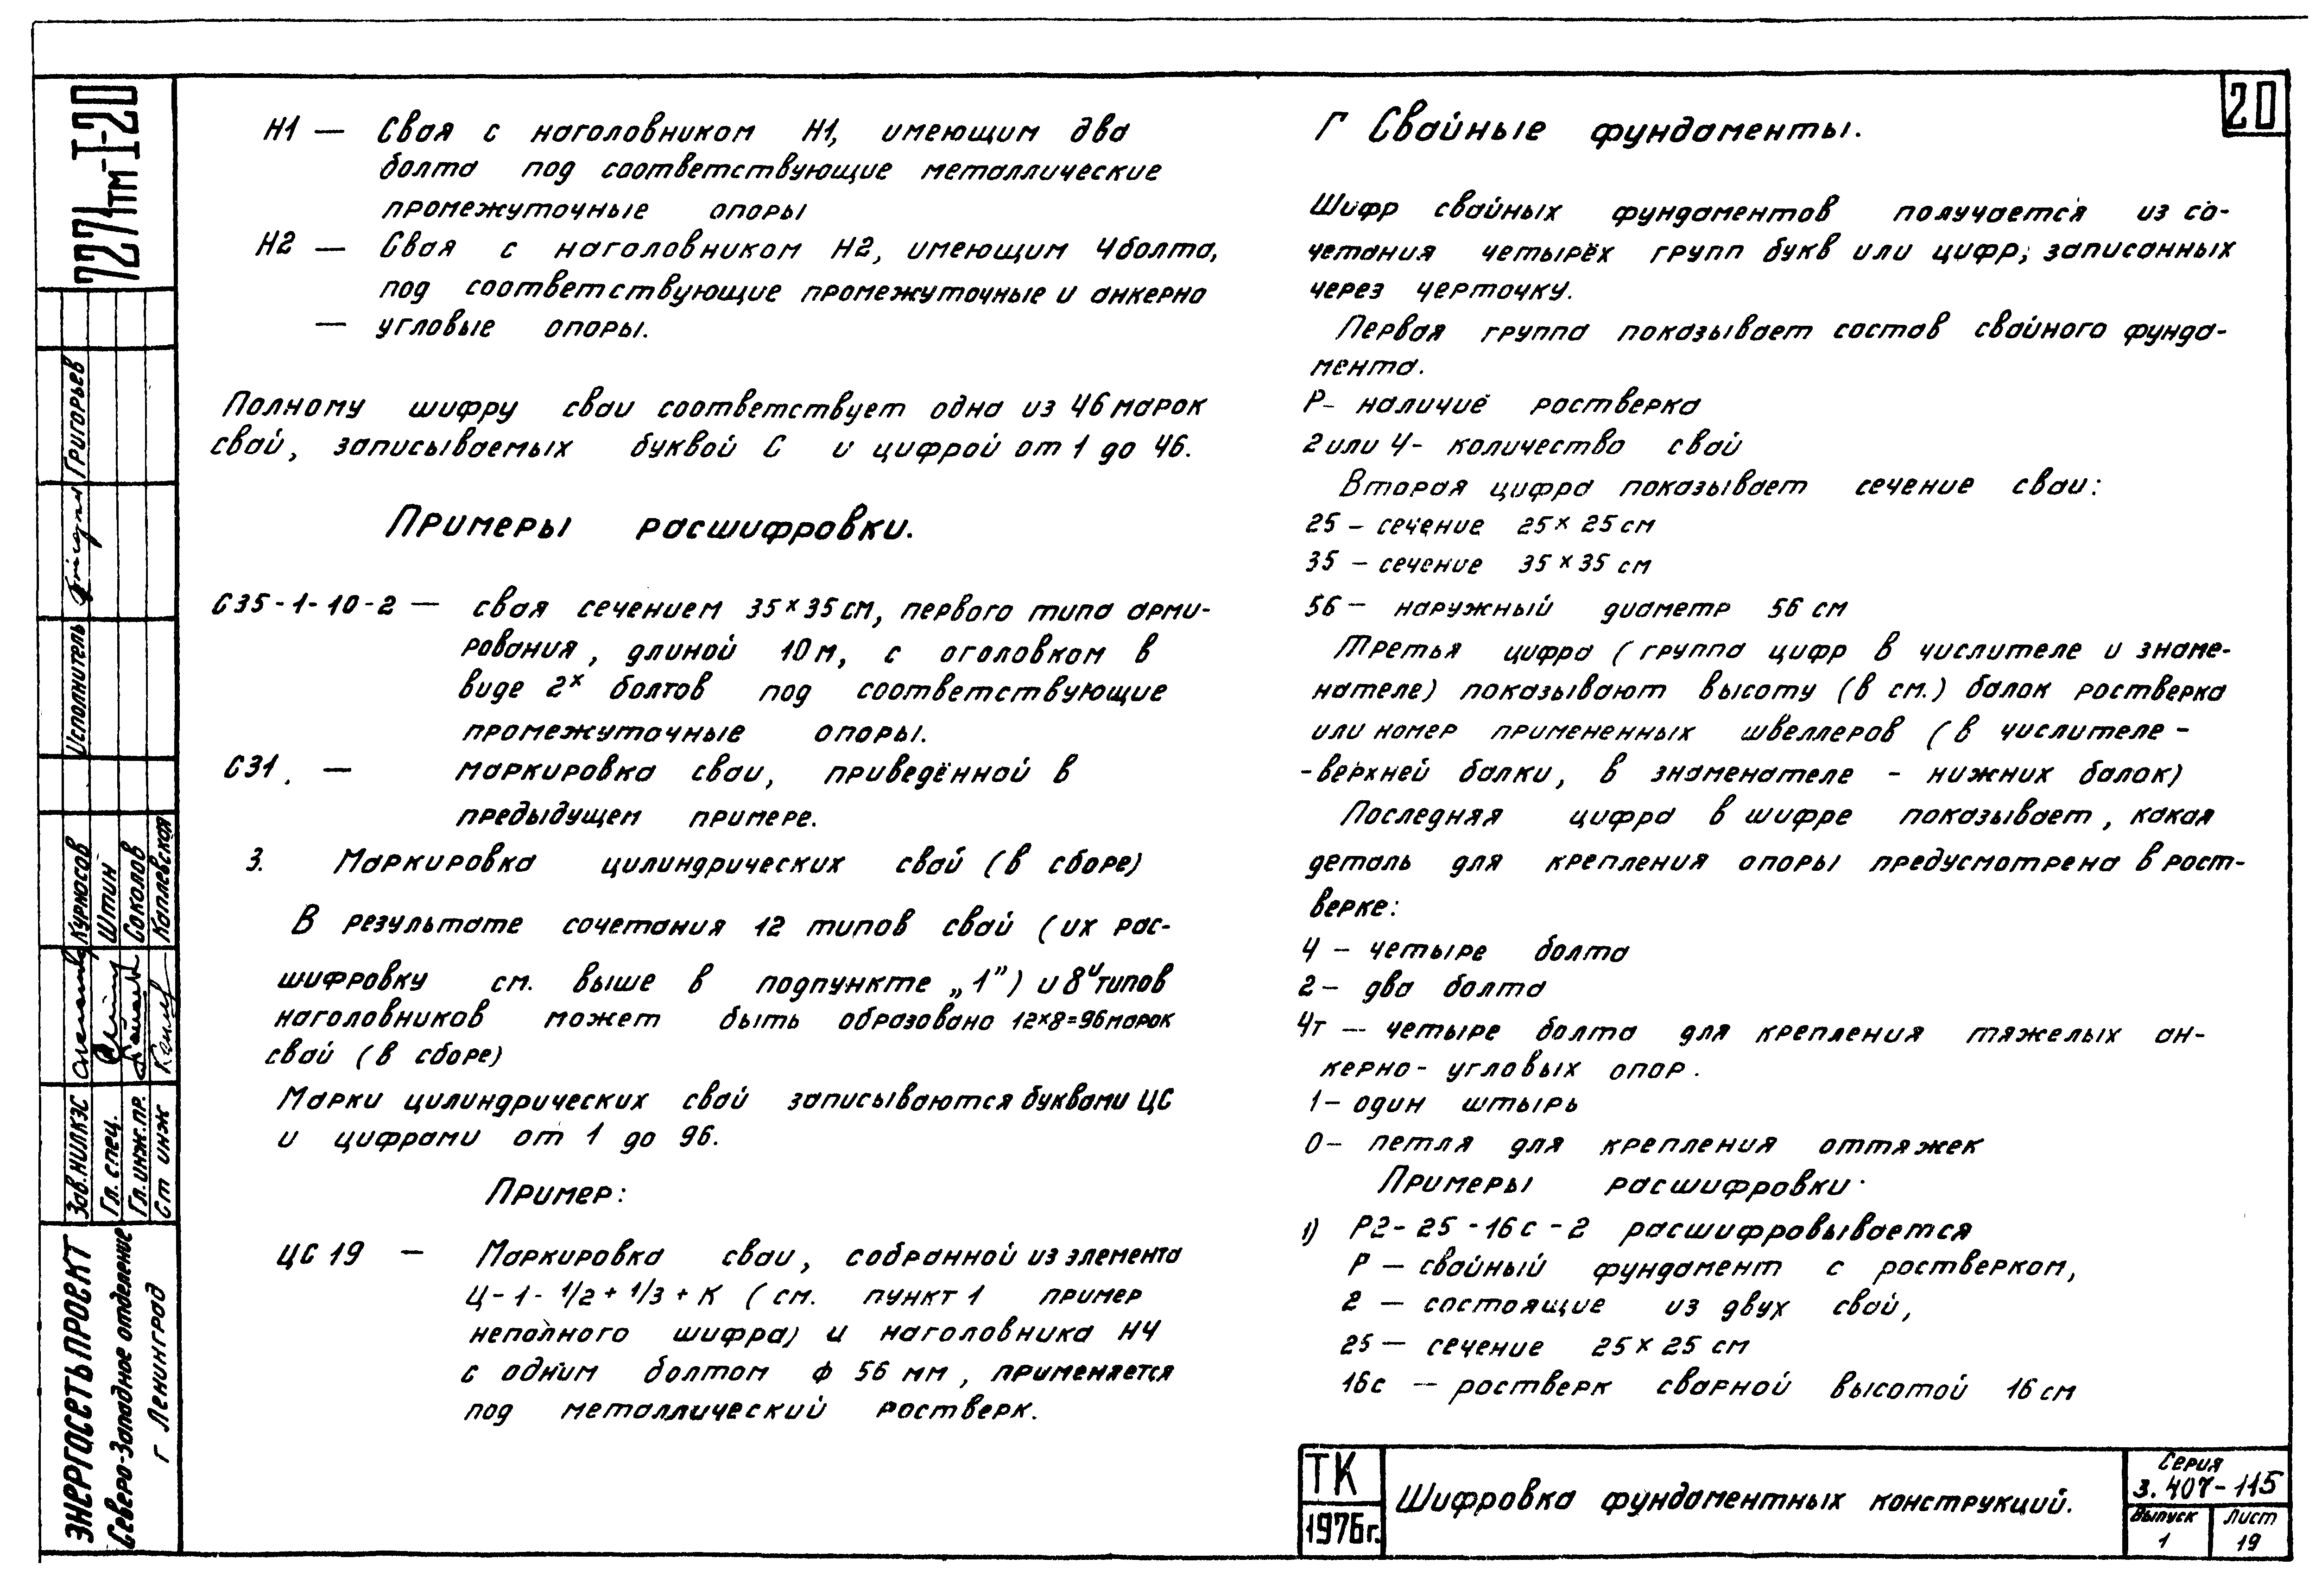 20
Н1 — Свая с наголовником Н1, имеющим два
болта под соответствующие металлические
промежуточные опоры
Н2 — Свая с наголовником Н2, имеющим 4болта,
под соответствующие промежуточные и анкерно
— угловые опоры.
Полному шифру сваи соответствует одна из 46 марок
свай, записываемых буквой С и цифрой от 1 до 46.
Примеры расшифровки.
С35-1-10-2 — свая сечением 35×35 см, первого типа арми-
рования, длиной 10 м, с оголовком в
виде 2х болтов под соответствующие
промежуточные опоры.
С31. — маркировка сваи, приведённой в
предыдущем примере.
3. Маркировка цилиндрических свай (в сборе)
В результате сочетания 12 типов свай (их рас-
шифровку см. выше в подпункте „1") и 8и типов
наголовников может быть образовано 12×8=96 марок
свай (в сборе)
Марки цилиндрических свай записываются буквами ЦС
и цифрами от 1 до 96.
Пример:
ЦС 19 — Маркировка сваи, собранной из элемента
Ц-1-1/2+1/3+К (см. пункт 1 пример
неполного шифра) и наголовника Н4
с одним болтом ф 56 мм, применяется
под металлический ростверк.
Г Свайные фундаменты.
Шифр свайных фундаментов получается из со-
четания четырёх групп букв или цифр, записанных
через черточку.
Первая группа показывает состав свайного фунда-
мента.
Р- наличие ростверка
2 или 4- количество свай
Вторая цифра показывает сечение сваи:
25 - сечение 25×25 см
35 - сечение 35×35 см
56 - наружный диаметр 56 см
Третья цифра (группа цифр в числителе и знаме-
нателе) показывают высоту (в см.) балок ростверка
или номер примененных швеллеров (в числителе -
-верхней балки, в знаменателе - нижних балок)
Последняя цифра в шифре показывает, какая
деталь для крепления опоры предусмотрена в рост-
верке:
4 - четыре болта
2 - два болта
4т — четыре болта для крепления тяжелых ан-
керно-угловых опор.
1- один штырь
0- петля для крепления оттяжек
Примеры расшифровки.
1) Р2-25-16с-2 расшифровывается
Р — свайный фундамент с ростверком,
2 — состоящие из двух свай,
25 — сечение 25×25 см
16с — ростверк сварной высотой 16 см
ТК
1976г.
Шифровка фундаментных конструкций.
Серия
3.407-115
Выпуск
1
Лист
19
7271тм-I-20
Исполнитель Григорьев
Зав. НИЛКЭС Курносов
Гл. спец. Штин
Гл. инж. пр. Соколов
Ст инж Каплевская
ЭНЕРГОСЕТЬПРОЕКТ
Северо-Западное отделение
г Ленинград